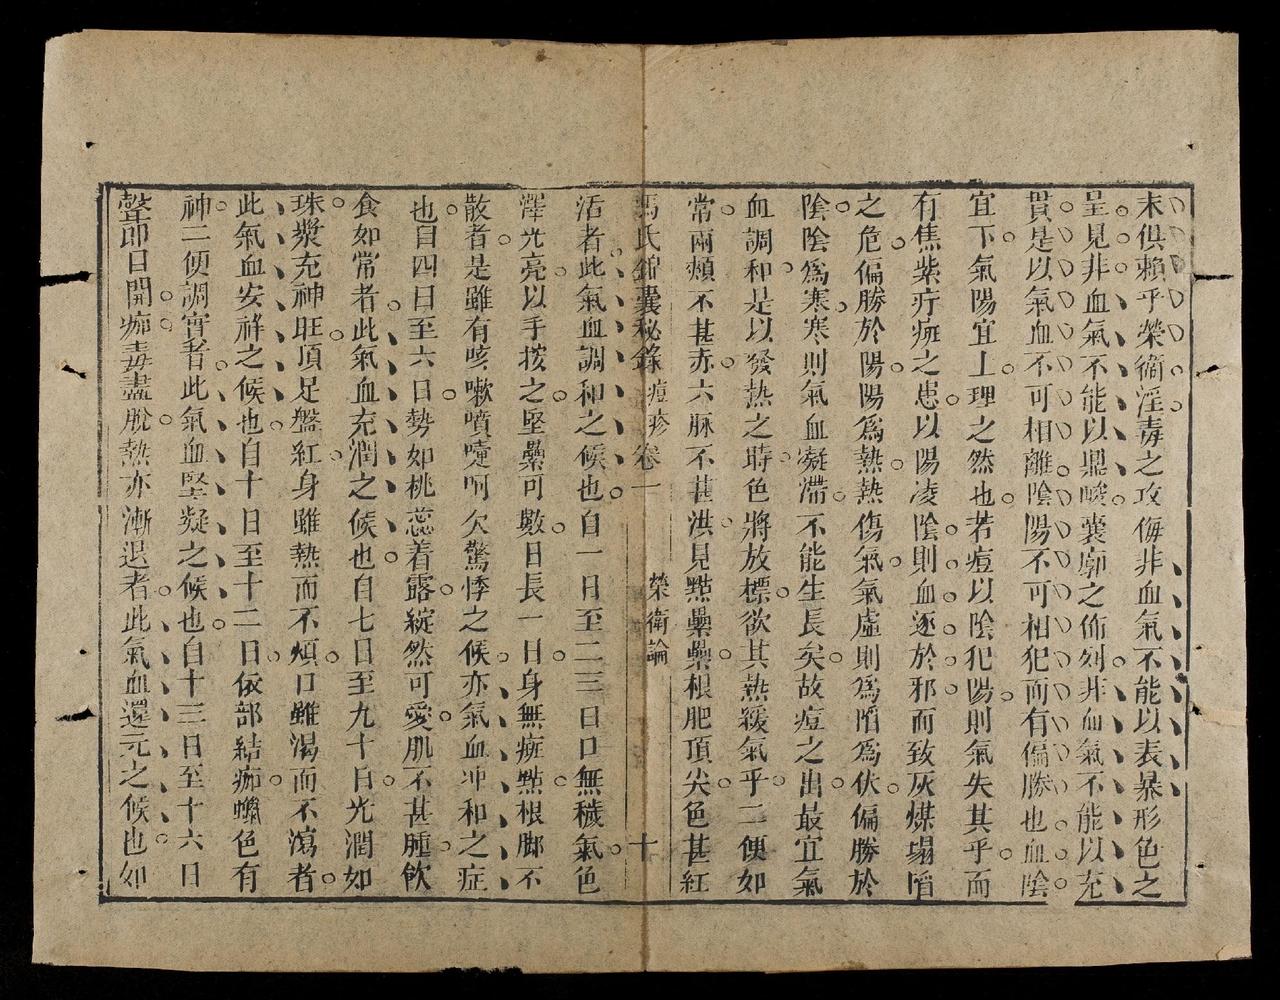 末俱賴乎榮衛淫毒之攻侮非血氣不能以表暴形色之
呈見非血氣不能以鼎峻囊廓之佈列非血氣不能以充
貫是以氣血不可相離陰陽不可相犯而有偏勝也血陰
宜下氣陽宜上理之然也若痘以陰犯陽則氣失其乎而
有焦紫疔斑之患以陽凌陰則血逐於邪而致灰煤塌陷
之危偏勝於陽陽爲熱熱傷氣氣虛則爲陷爲伏偏勝於
陰陰爲寒寒則氣血凝滯不能生長矣故痘之出最宜氣
血調和是以發熱之時色將放標欲其熱緩氣乎二便如
常兩頰不甚赤六脉不甚洪見點纍纍根肥頂尖色甚紅
馮氏錦囊秘錄痘疹卷一 榮衛論 十
活者此氣血調和之候也自一日至二三日口無穢氣色
澤光亮以手按之堅纍可數日長一日身無痲點根脚不
散者是雖有咳嗽噴嚏呵欠驚悸之候亦氣血冲和之症
也自四日至六日勢如桃蕊着露綻然可愛肌不甚腫飲
食如常者此氣血充潤之候也自七日至九十日光潤如
珠漿充神旺頂足盤紅身雖熱而不煩口雖渴而不瀉者
此氣血安祥之候也自十日至十二日依部結痂蠟色有
神二便調實者此氣血堅凝之候也自十三日至十六日
聲音日開痂毒盡脫熱亦漸退者此氣血還元之候也如